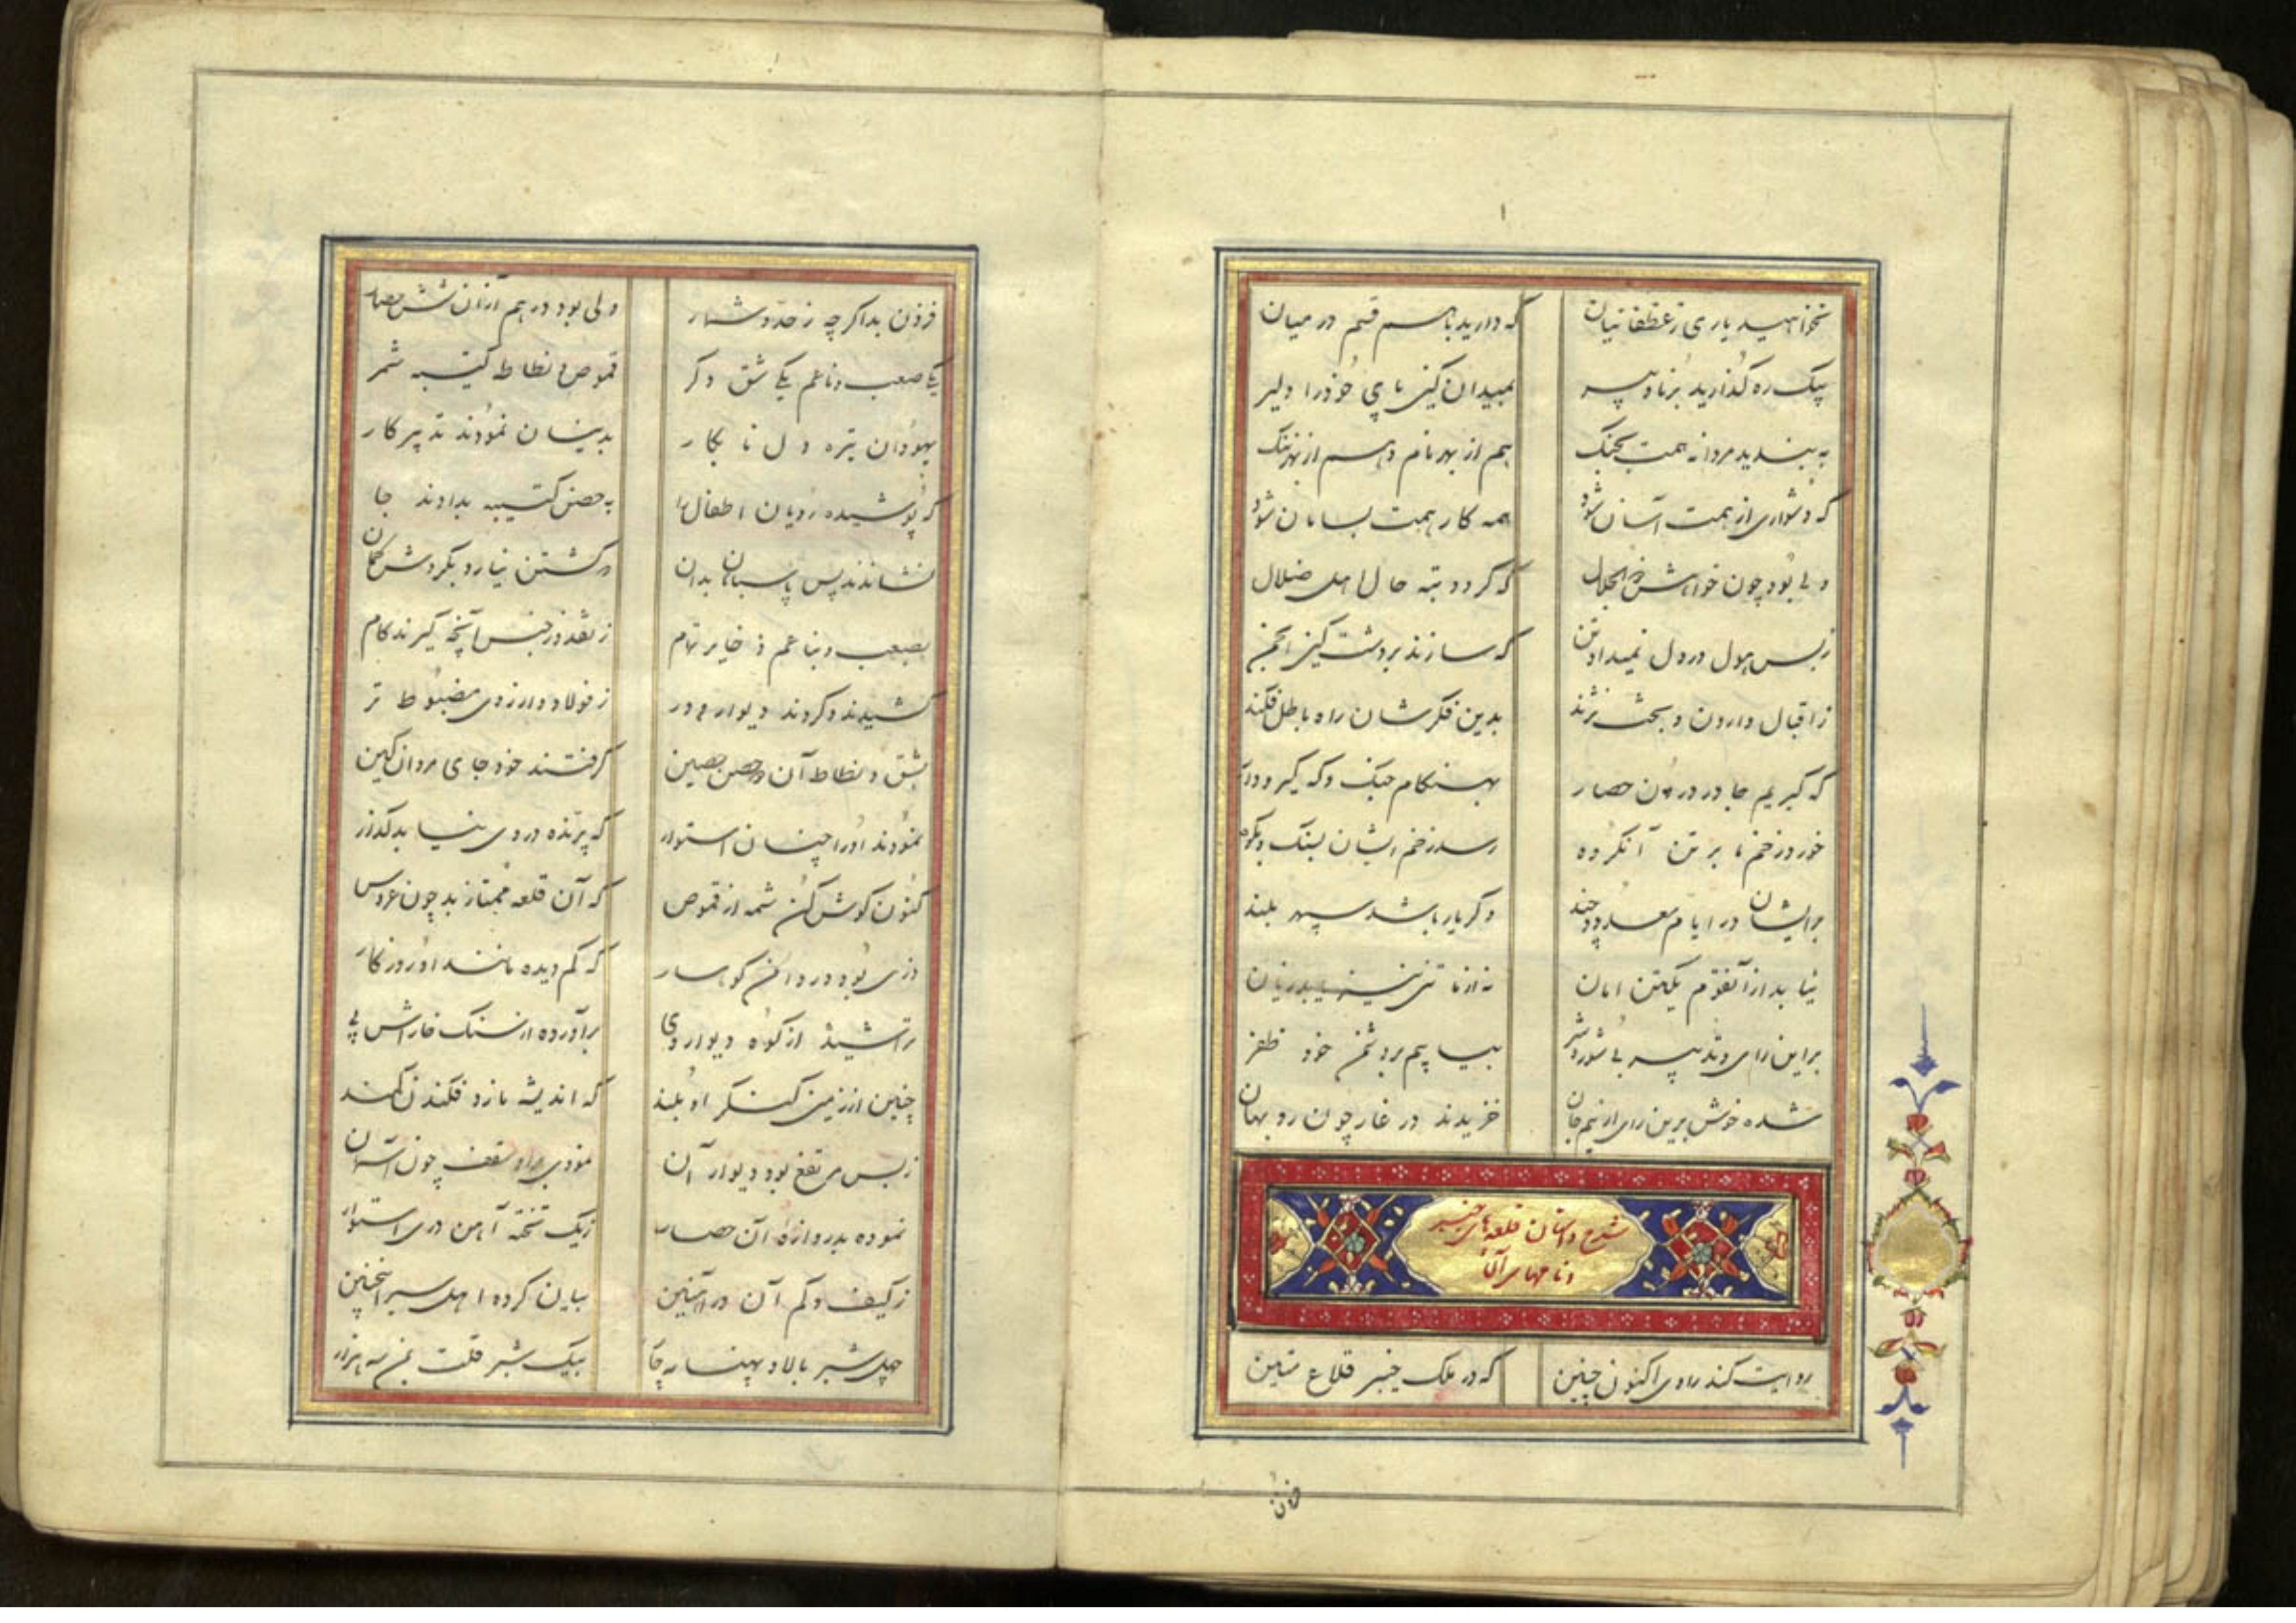 نخواهید یاری ز غطفانیان که دارید با هم قسم در میان
بیک ره گذارید برنا و پیر بمیدان کین پای خود را دلیر
به بندید مردانه همت بجنگ هم از بهر نام و هم از بهر ننگ
که دشواری از همت آسان شود همه کار همت بسامان شود
ولی بود چون خواهش ذوالجلال که گردد تبه حال اهل ضلال
ز بس هول در دل نمیداد تن که سازند بر دشت کین انجمن
ز اقبال وارون و بخت نژند بدین فکرشان راه باطل فکند
که گیریم جا در درون حصار بهنگام جنگ و گه گیر و دار
خورد زخم ما بر تن آنگروه رسد زخم ایشان بسنگ و بکوه
بر ایشان در ایام معدود چند وگر یار باشد سپهر بلند
نیابد از آنقوم یکتن امان نه از ما تنی نیز یابد زیان
بر این رای و تدبیر بی شور و شر بیابیم بر دشمن خود ظفر
شده خوش برین رای از بیم جان خزیدند در غار چون روبهان
شرح داستان قلعه‌های خیبر
و نامهای آنها
روایت کند راوی اکنون چنین که در ملک خیبر قلاع متین
فزون
فزون بد اگرچه ز حد و شمار ولی بود در هم ازان شش حصار
یکی صعب و ناعم یکی شق دگر قموص و نطاط کتیبه شمر
یهودان تیره دل نابکار بدینسان نمودند تدبیر کار
که پوشیده رویان اطفال را به حصن کتیبه بدادند جا
نشاندند پس پاسبانان بدان که گشتن نیارد بگردش گمان
بصعب و بناعم ذخایر تمام ز نقد و ز جنس آنچه گیرند کام
کشیدند و کردند دیوار و در ز فولاد و ارزوی مضبوط تر
بشق و نطاط آن دو حصن حصین گرفتند خود جای مردان کین
نمودند او را چنان استوار که پرنده در وی نیابد گذار
کنون گوش کن شمه از قموص که آن قلعه ممتاز بد چون عروس
دزی بود در دامن کوهسار که کم دیده مانند او روزگار
تراشیده از کوه دیوار وی برآورده از سنگ خاراش پی
چنین از زمین کنگر او بلند که اندیشه نارد فکندن کمند
ز بس مرتفع بود دیوار آن نمودی برو سقف چون آسمان
نموده بدروازه آن حصار ز یک تخته آهن دری استوار
ز کیف و کم آن در آهنین بیان کرده اهل سیر اینچنین
چهل شبر بالا و پهنا به جا بیک شبر قلت